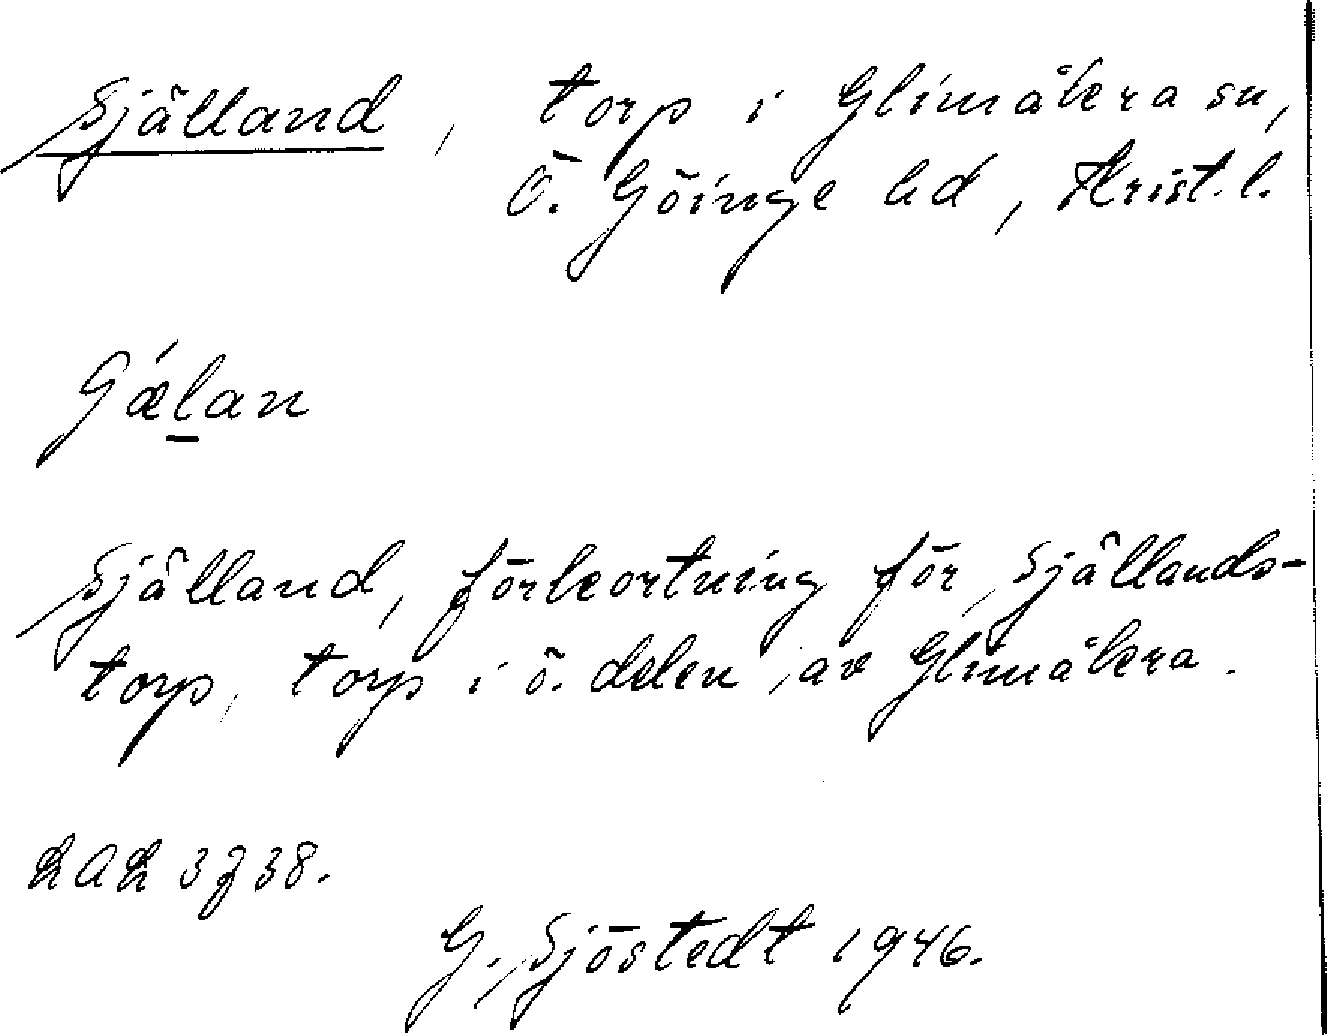 Själland, torp i Glimåkra sn,
Ö. Göinge hd, Krist. l.
Sǽlan
Själland, förkortning för Själlands-
torp, torp i ö. delen av Glimåkra.
3 g 38.
G. Sjöstedt 1946.